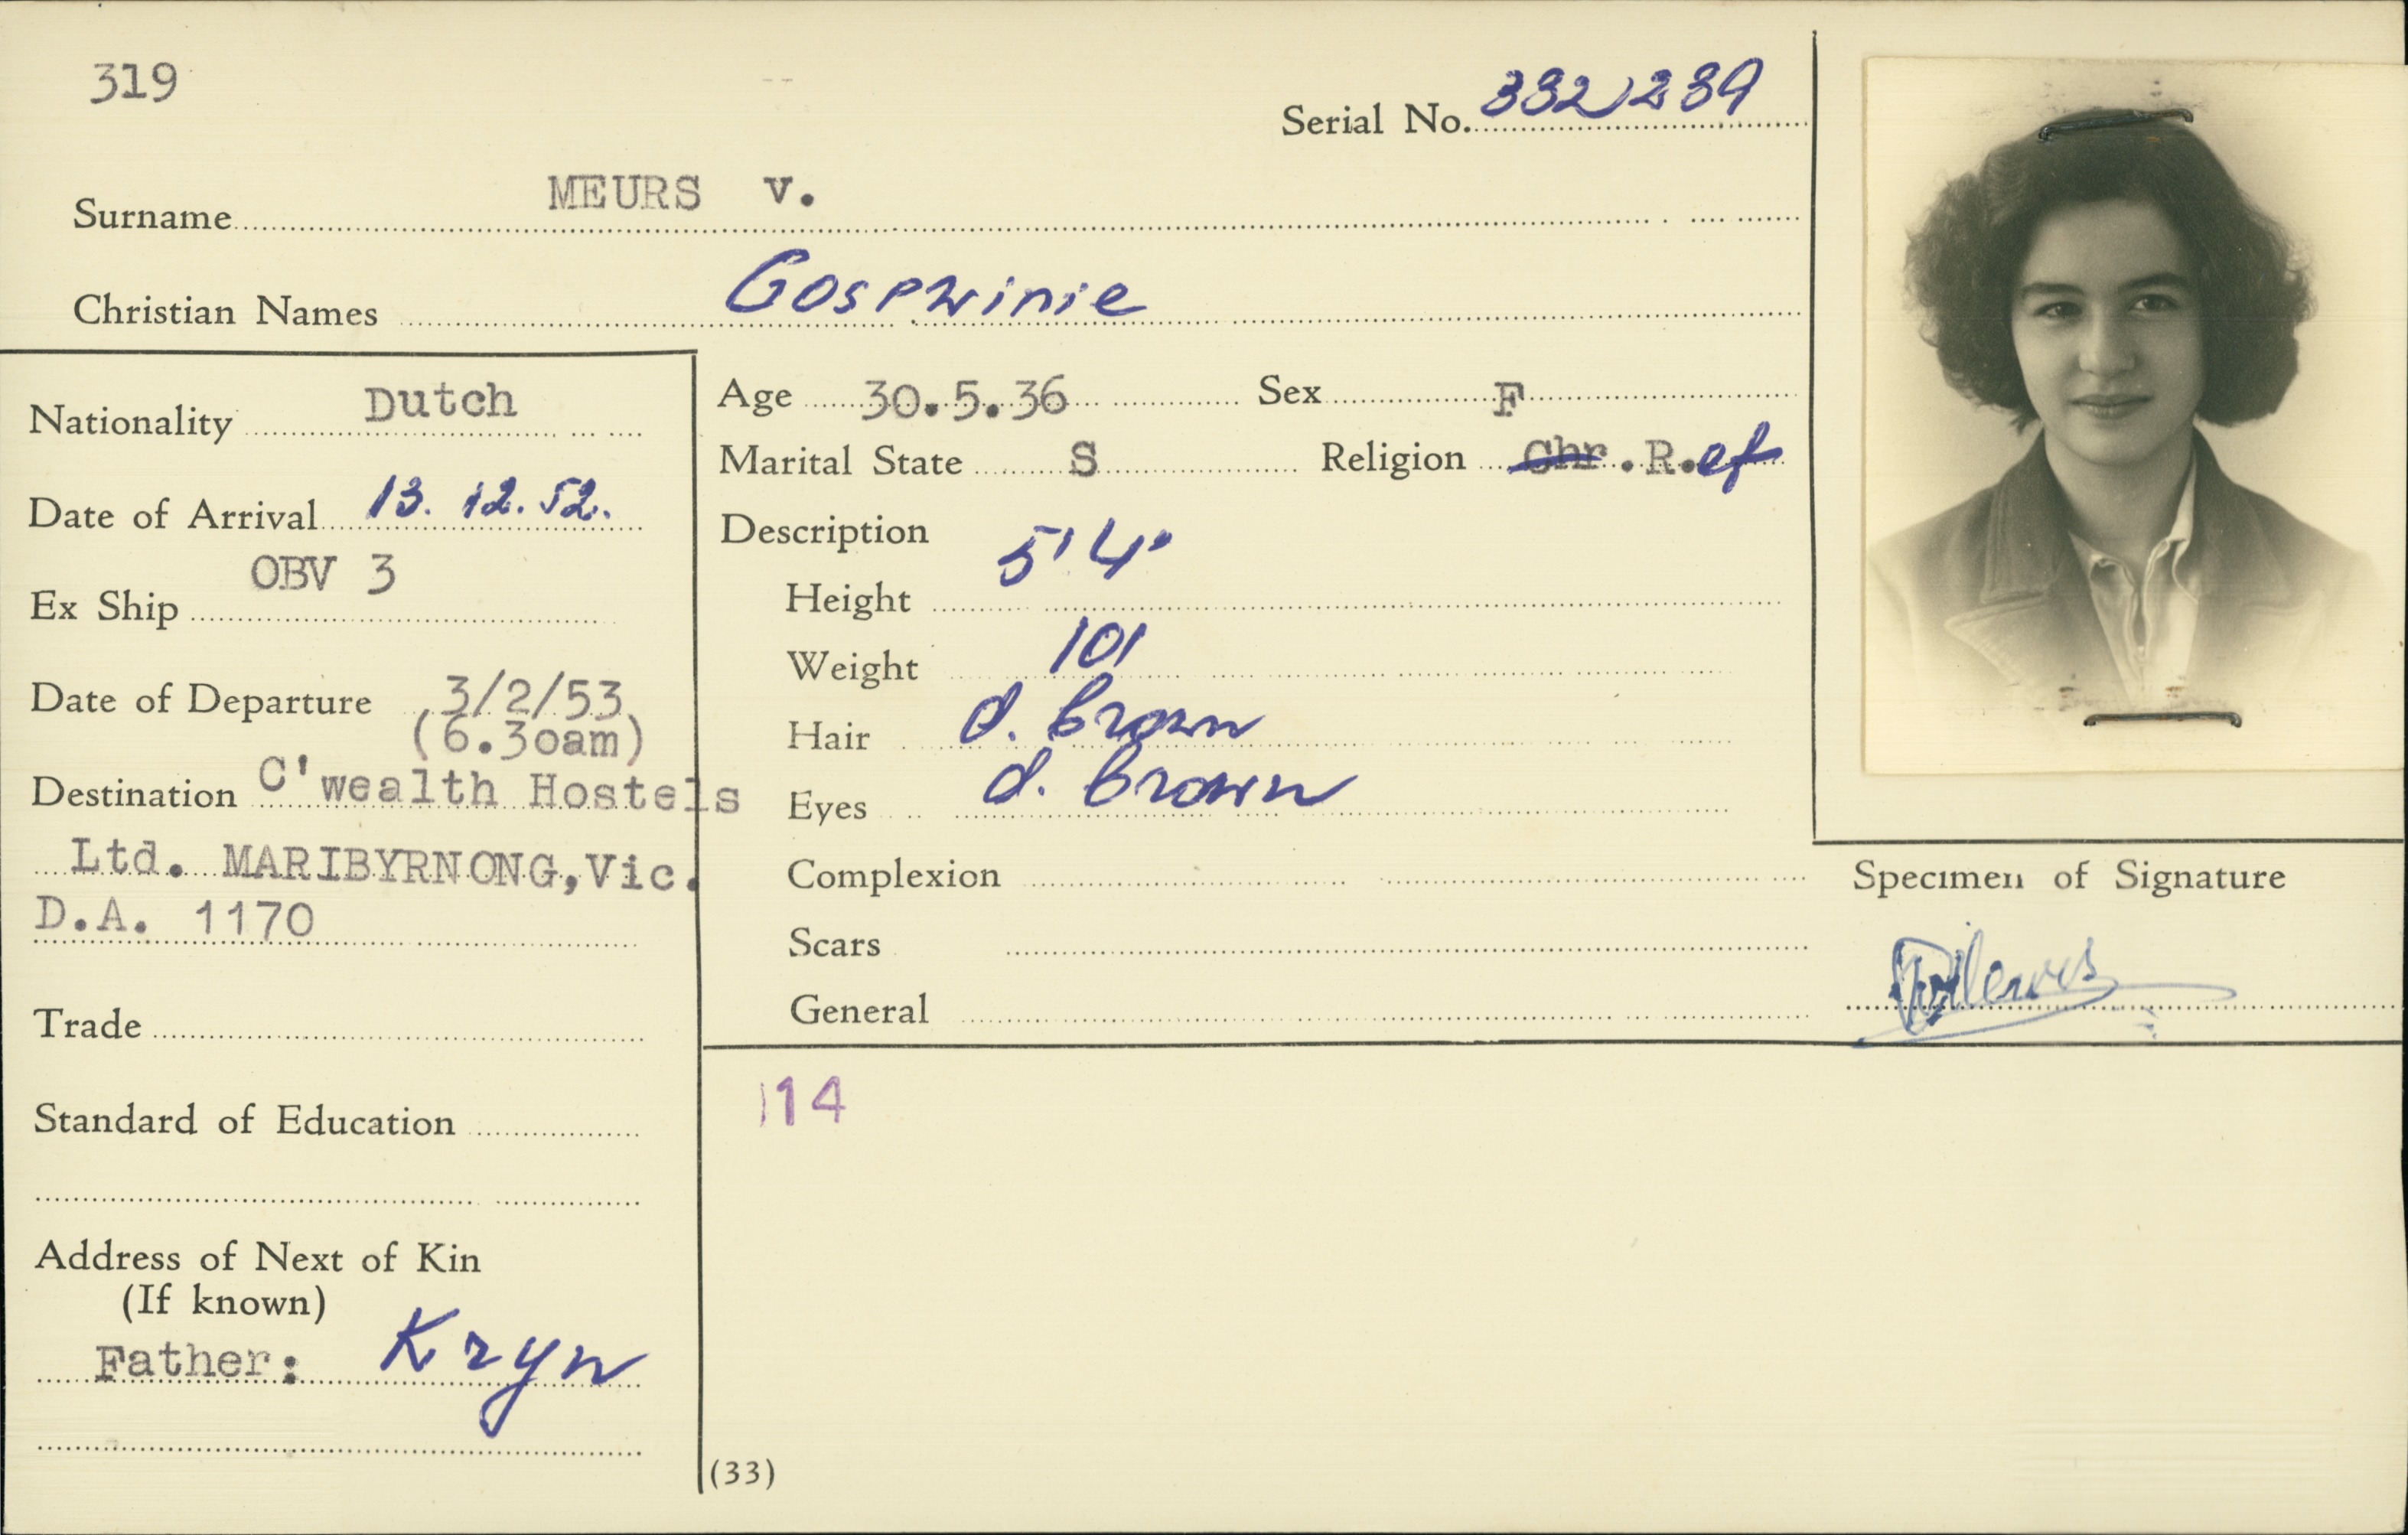 319
Serial No. 332239
Surname MEURS v.
Christian Names Gosewinie
Nationality Dutch
Date of Arrival 13. 12. 52.
Ex Ship OBV 3
Date of Departure 3/2/53
(6.30am)
Destination C'wealth Hostels
Ltd. MARIBYRNONG,Vic.
D.A. 1170
Trade
Standard of Education
Address of Next of Kin
(If known)
Father: Kryn
Age 30.5.36 Sex F
Marital State S Religion Chr.R.ef
Description
Height 5'4"
Weight 101
Hair d. brown
Eyes d. brown
Complexion
Scars
General
114
(33)
Specimen of Signature